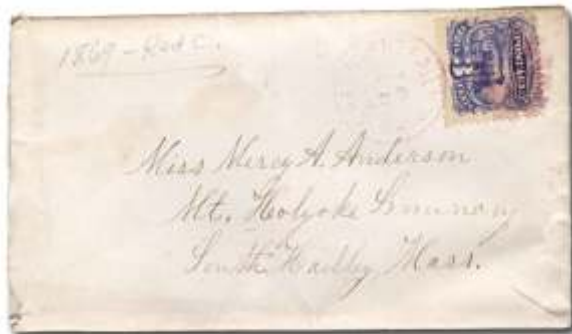 1869 - Red C.
Miss Mercy A. Anderson
Mt. Holyoke Seminary
South Hadley Mass.
3